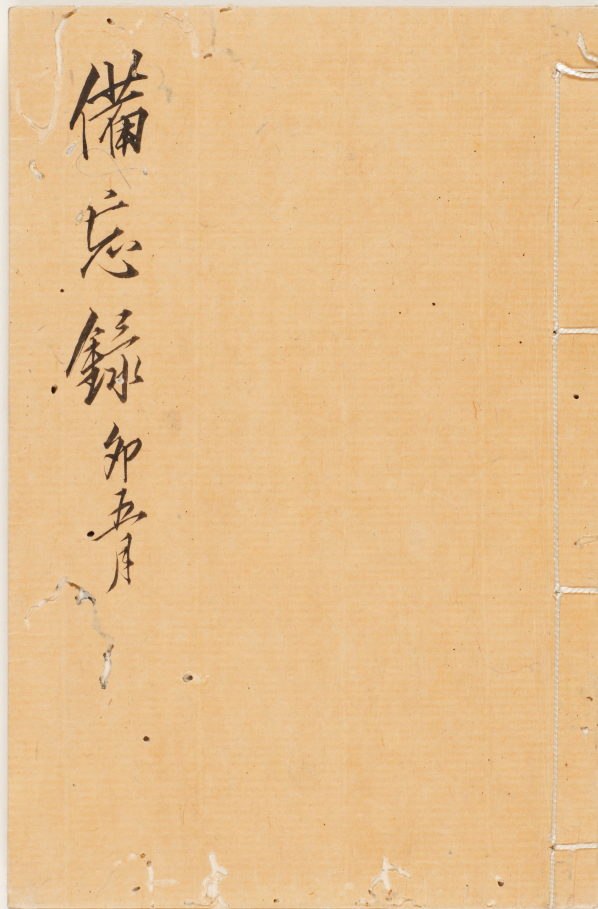 備忘録 卯五月